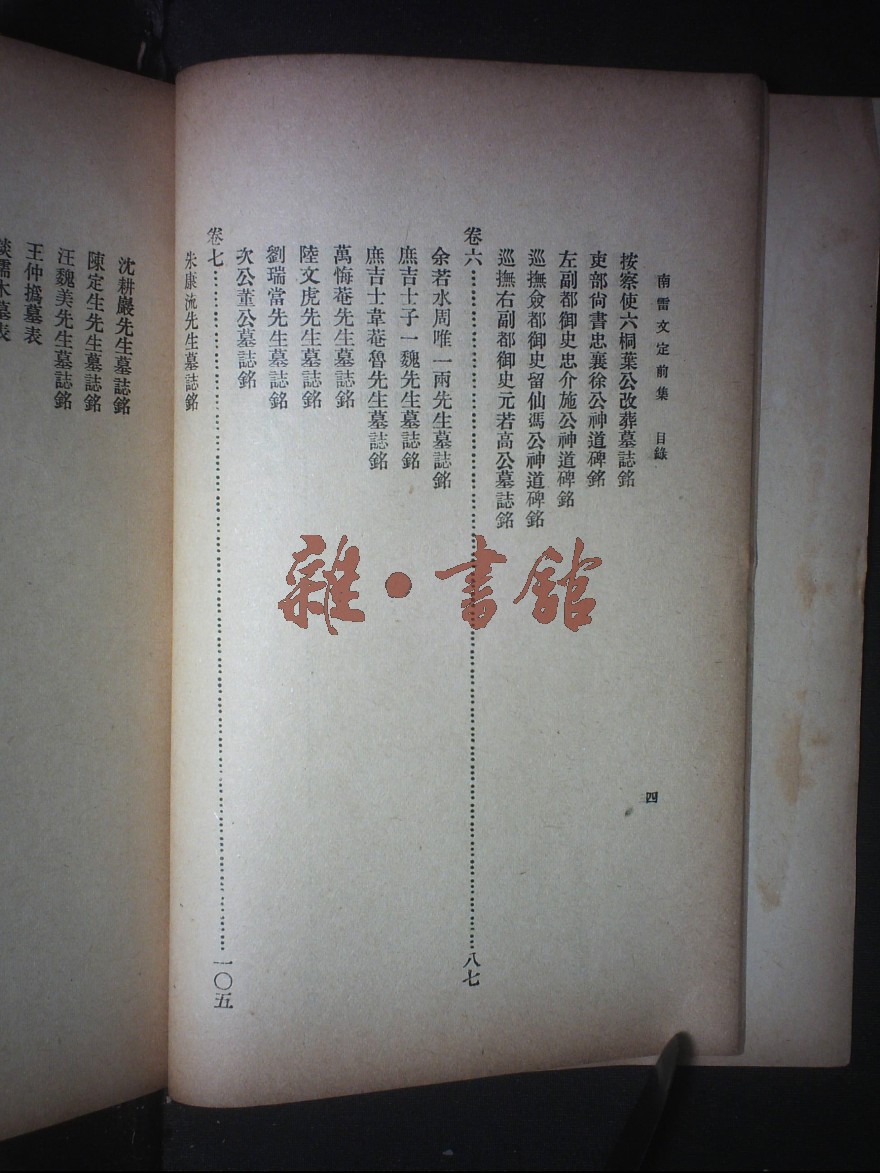 南雷文定前集 目錄
按察使六桐葉公改葬墓誌銘
吏部尚書忠襄徐公神道碑銘
左副都御史忠介施公神道碑銘
巡撫僉都御史留仙馮公神道碑銘
巡撫右副都御史元若高公墓誌銘
卷六……八七
余若水周唯一兩先生墓誌銘
庶吉士子一魏先生墓誌銘
庶吉士韋菴魯先生墓誌銘
萬悔菴先生墓誌銘
陸文虎先生墓誌銘
劉瑞當先生墓誌銘
次公董公墓誌銘
卷七……一〇五
朱康流先生墓誌銘
四
沈耕巖先生墓誌銘
陳定生先生墓誌銘
汪魏美先生墓誌銘
王仲撝墓表
談孺木墓表
雜·書館